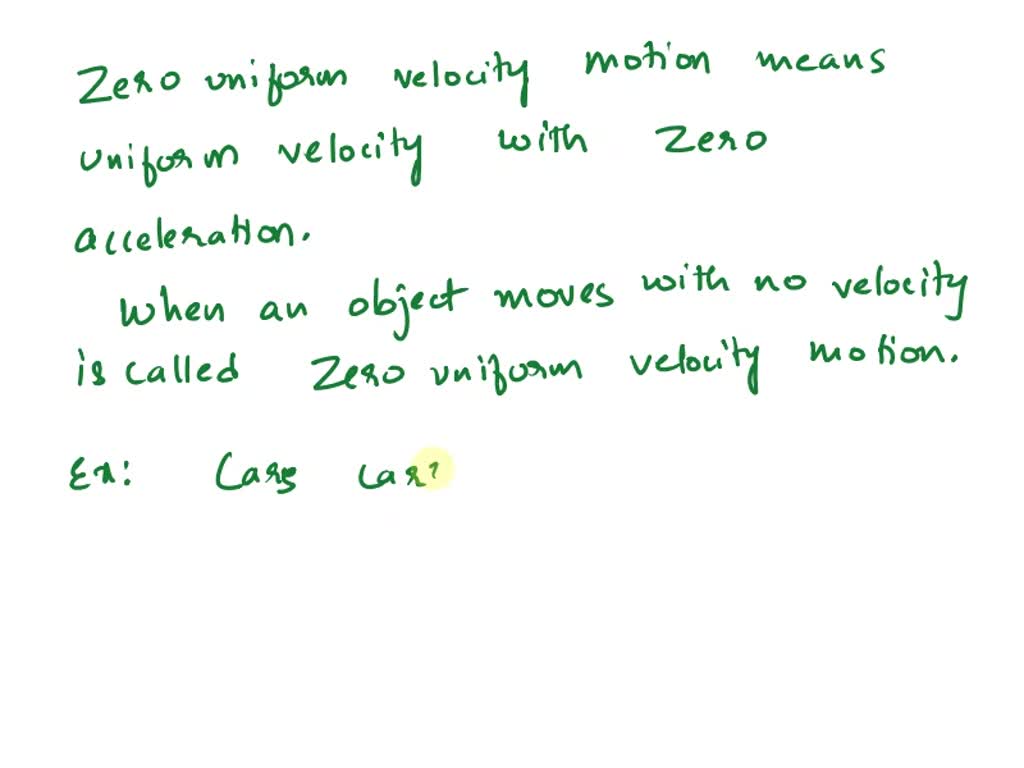 Zero uniform velocity motion means
uniform velocity with zero
acceleration.
When an object moves with no velocity
is called Zero uniform velocity motion.
Ex: Cars